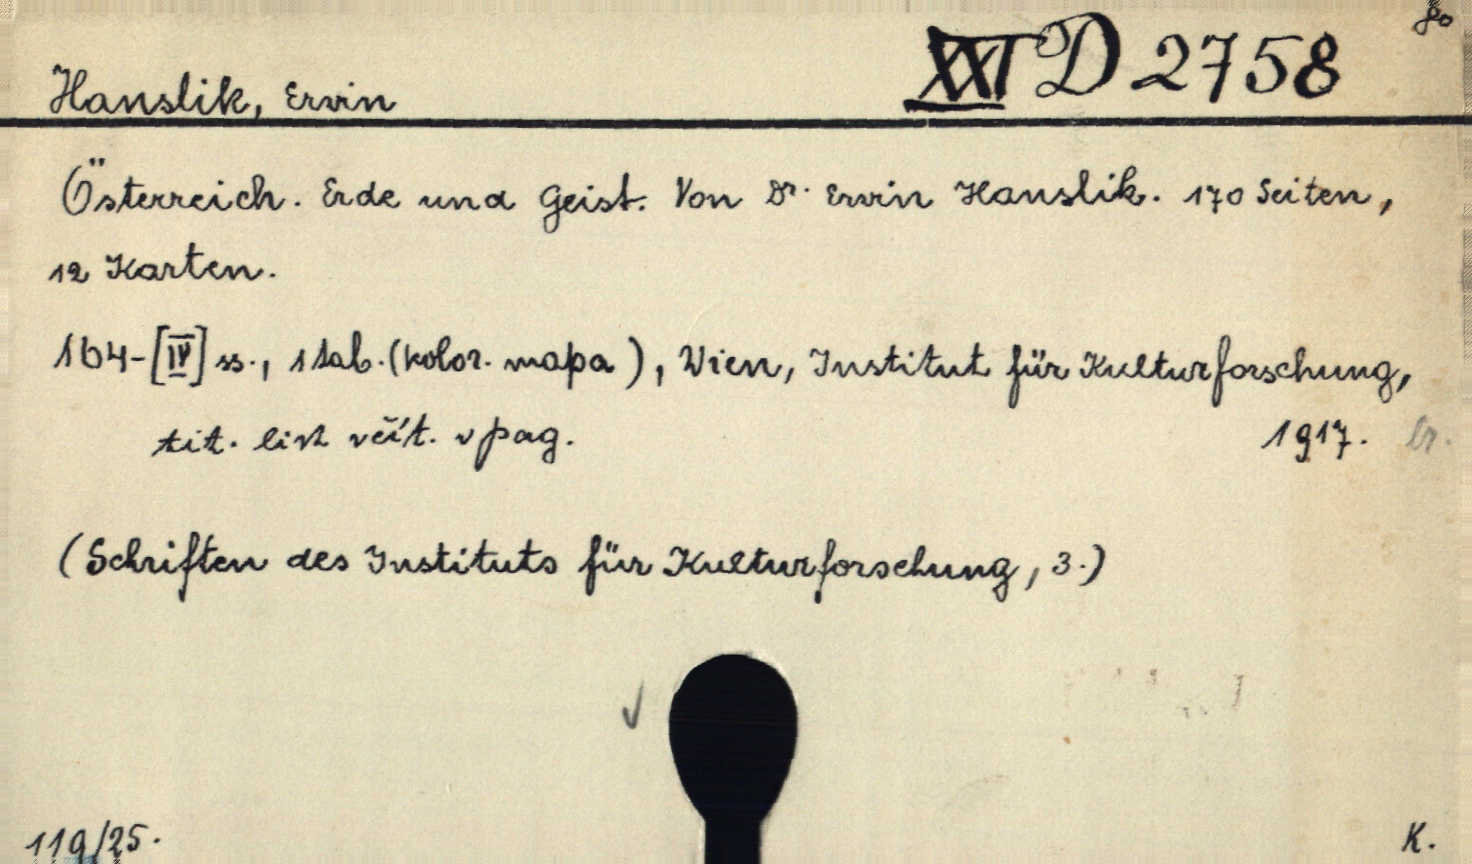 80
XXI D 2758
Hanslik, Ervin
Österreich. Erde und Geist. Von Dr. Ervin Hanslik. 170 Seiten,
12 Karten.
164-[IV] ss., 1 tab. (kolor. mapa), Wien, Institut für Kulturforschung,
tit. list včít. v pag. 1917. br.
(Schriften des Instituts für Kulturforschung, 3.)
119/25. K.